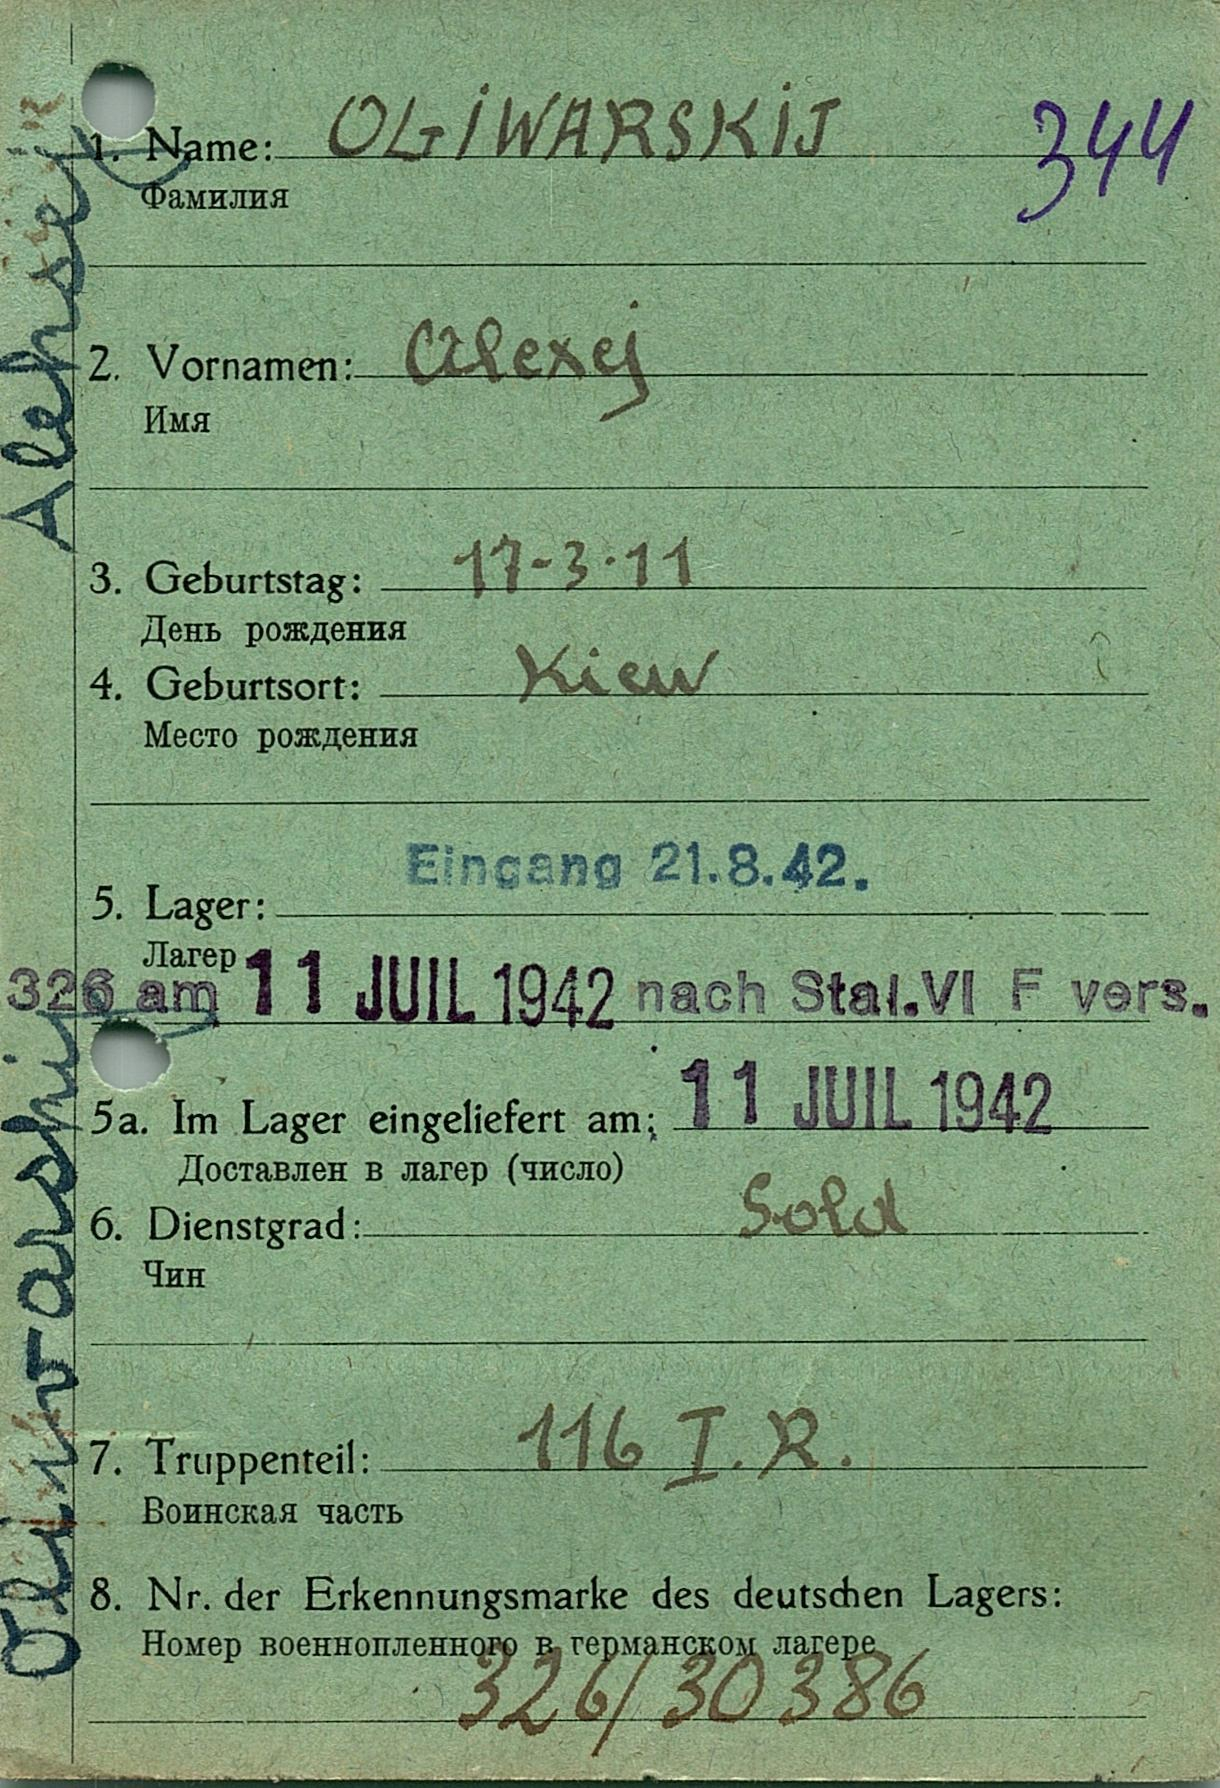 1. Name: OLIWARSKIJ 344
Фамилия
2. Vornamen: Alexej
Имя
3. Geburtstag: 17-3·11
День рождения
4. Geburtsort: Kiew
Место рождения
Eingang 21.8.42.
5. Lager:
Лагер
326 am 11 JUIL 1942 nach Stal.VI F vers.
5a. Im Lager eingeliefert am: 11 JUIL 1942
Доставлен в лагер (число)
6. Dienstgrad: Sold
Чин
7. Truppenteil: 116 I.R.
Воинская часть
8. Nr. der Erkennungsmarke des deutschen Lagers:
Номер военнопленного в германском лагере
326/30386
Oliwarskij Aleksej